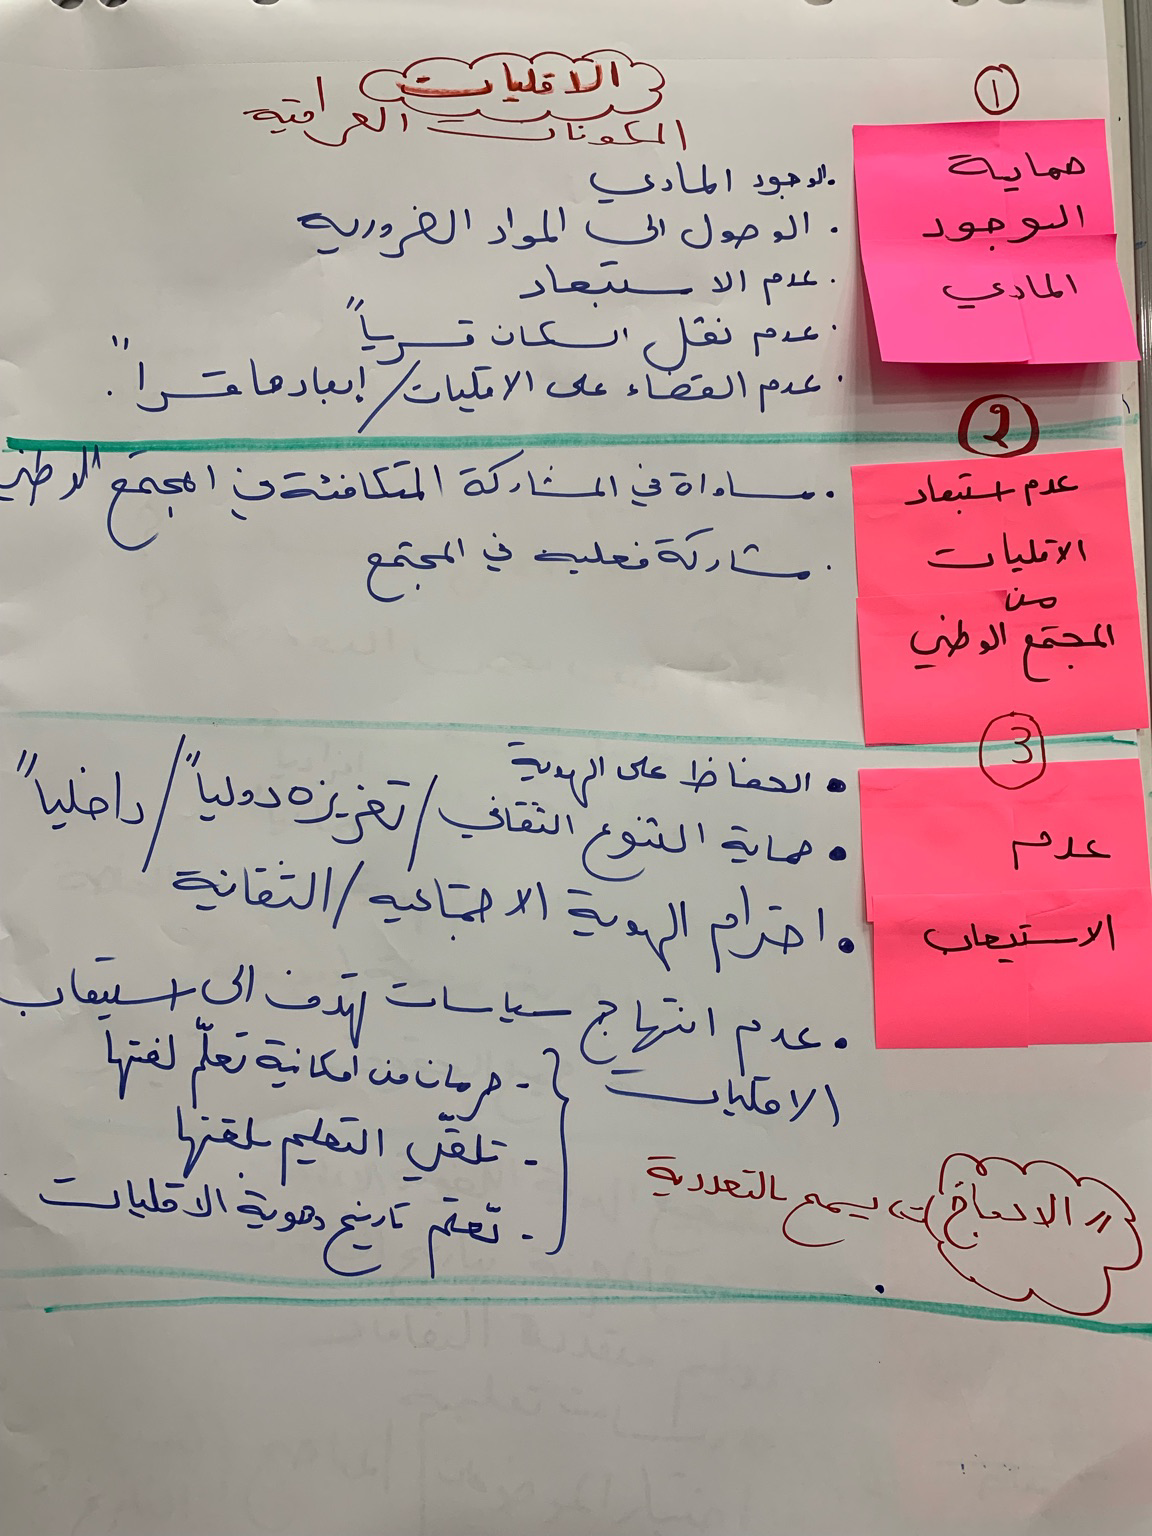 الاقليات
المكونات العراقية
①
حماية
الوجود
المادي
. الوجود المادي
. الوصول الى المواد الضرورية
. عدم الاستبعاد
. عدم نقل السكان قسرياً
. عدم القضاء على الاقليات / إبعادها قسراً .
②
عدم استبعاد
الاقليات
من
المجتمع الوطني
. مساواة في المشاركة المتكافئة في المجتمع الوطني
. مشاركة فعلية في المجتمع
③
عدم
الاستيعاب
• الحفاظ على الهوية
• حماية التنوع الثقافي / تعزيزه دولياً / داخلياً
• احترام الهوية الاجتماعية / الثقافية
• عدم انتهاج سياسات تهدف الى استيعاب
الاقليات
- حرمان من امكانية تعلّم لغتها
- تلقّي التعليم بلغتها
- تعلّم تاريخ وهوية الاقليات
الاندماج يسمح بالتعددية